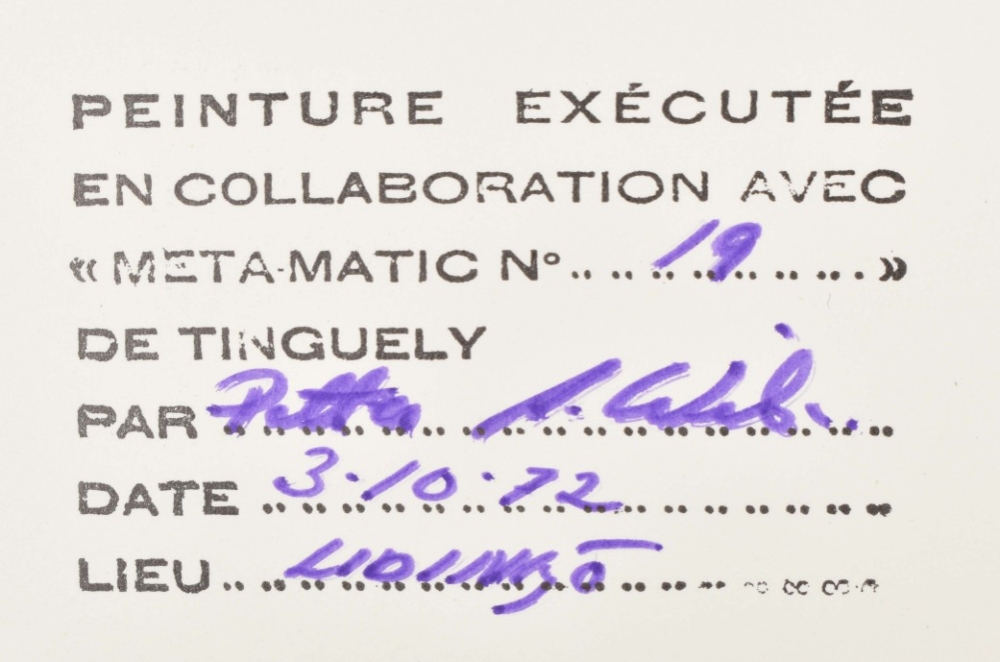 PEINTURE EXÉCUTÉE
EN COLLABORATION AVEC
« META-MATIC N° 19 »
DE TINGUELY
PAR
DATE 3·10·72
LIEU LIDINGÖ